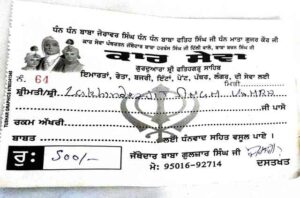 ਧੰਨ ਧੰਨ ਬਾਬਾ ਜ਼ੋਰਾਵਰ ਸਿੰਘ ਧੰਨ ਧੰਨ ਬਾਬਾ ਫਤਿਹ ਸਿੰਘ ਜੀ ਧੰਨ ਮਾਤਾ ਗੁਜਰ ਕੌਰ ਜੀ
ਕਾਰ ਸੇਵਾ
ਗੁਰਦੁਆਰਾ ਸ਼੍ਰੀ ਫਤਿਹਗੜ੍ਹ ਸਾਹਿਬ
ਇਮਾਰਤਾਂ, ਰੇਤਾ, ਬਜਰੀ, ਇੱਟਾਂ, ਪੇਂਟ, ਪੱਥਰ, ਲੰਗਰ, ਦੀ ਸੇਵਾ ਲਈ
ਨੰ. 64
ਮਿਤੀ
ਸ਼੍ਰੀਮਤੀ/ਸ਼੍ਰੀ Lakhinder Singh
ਜੀ ਪਾਸੋਂ
ਰਕਮ ਅੱਖਰੀ
ਬਾਬਤ ਲਈ ਧੰਨਵਾਦ ਸਹਿਤ ਵਸੂਲ ਪਾਏ।
ਰੁ: 500/-
ਜੱਥੇਦਾਰ ਬਾਬਾ ਗੁਲਜ਼ਾਰ ਸਿੰਘ ਜੀ
ਮੋ: 95016-92714
ਦਸਤਖਤ